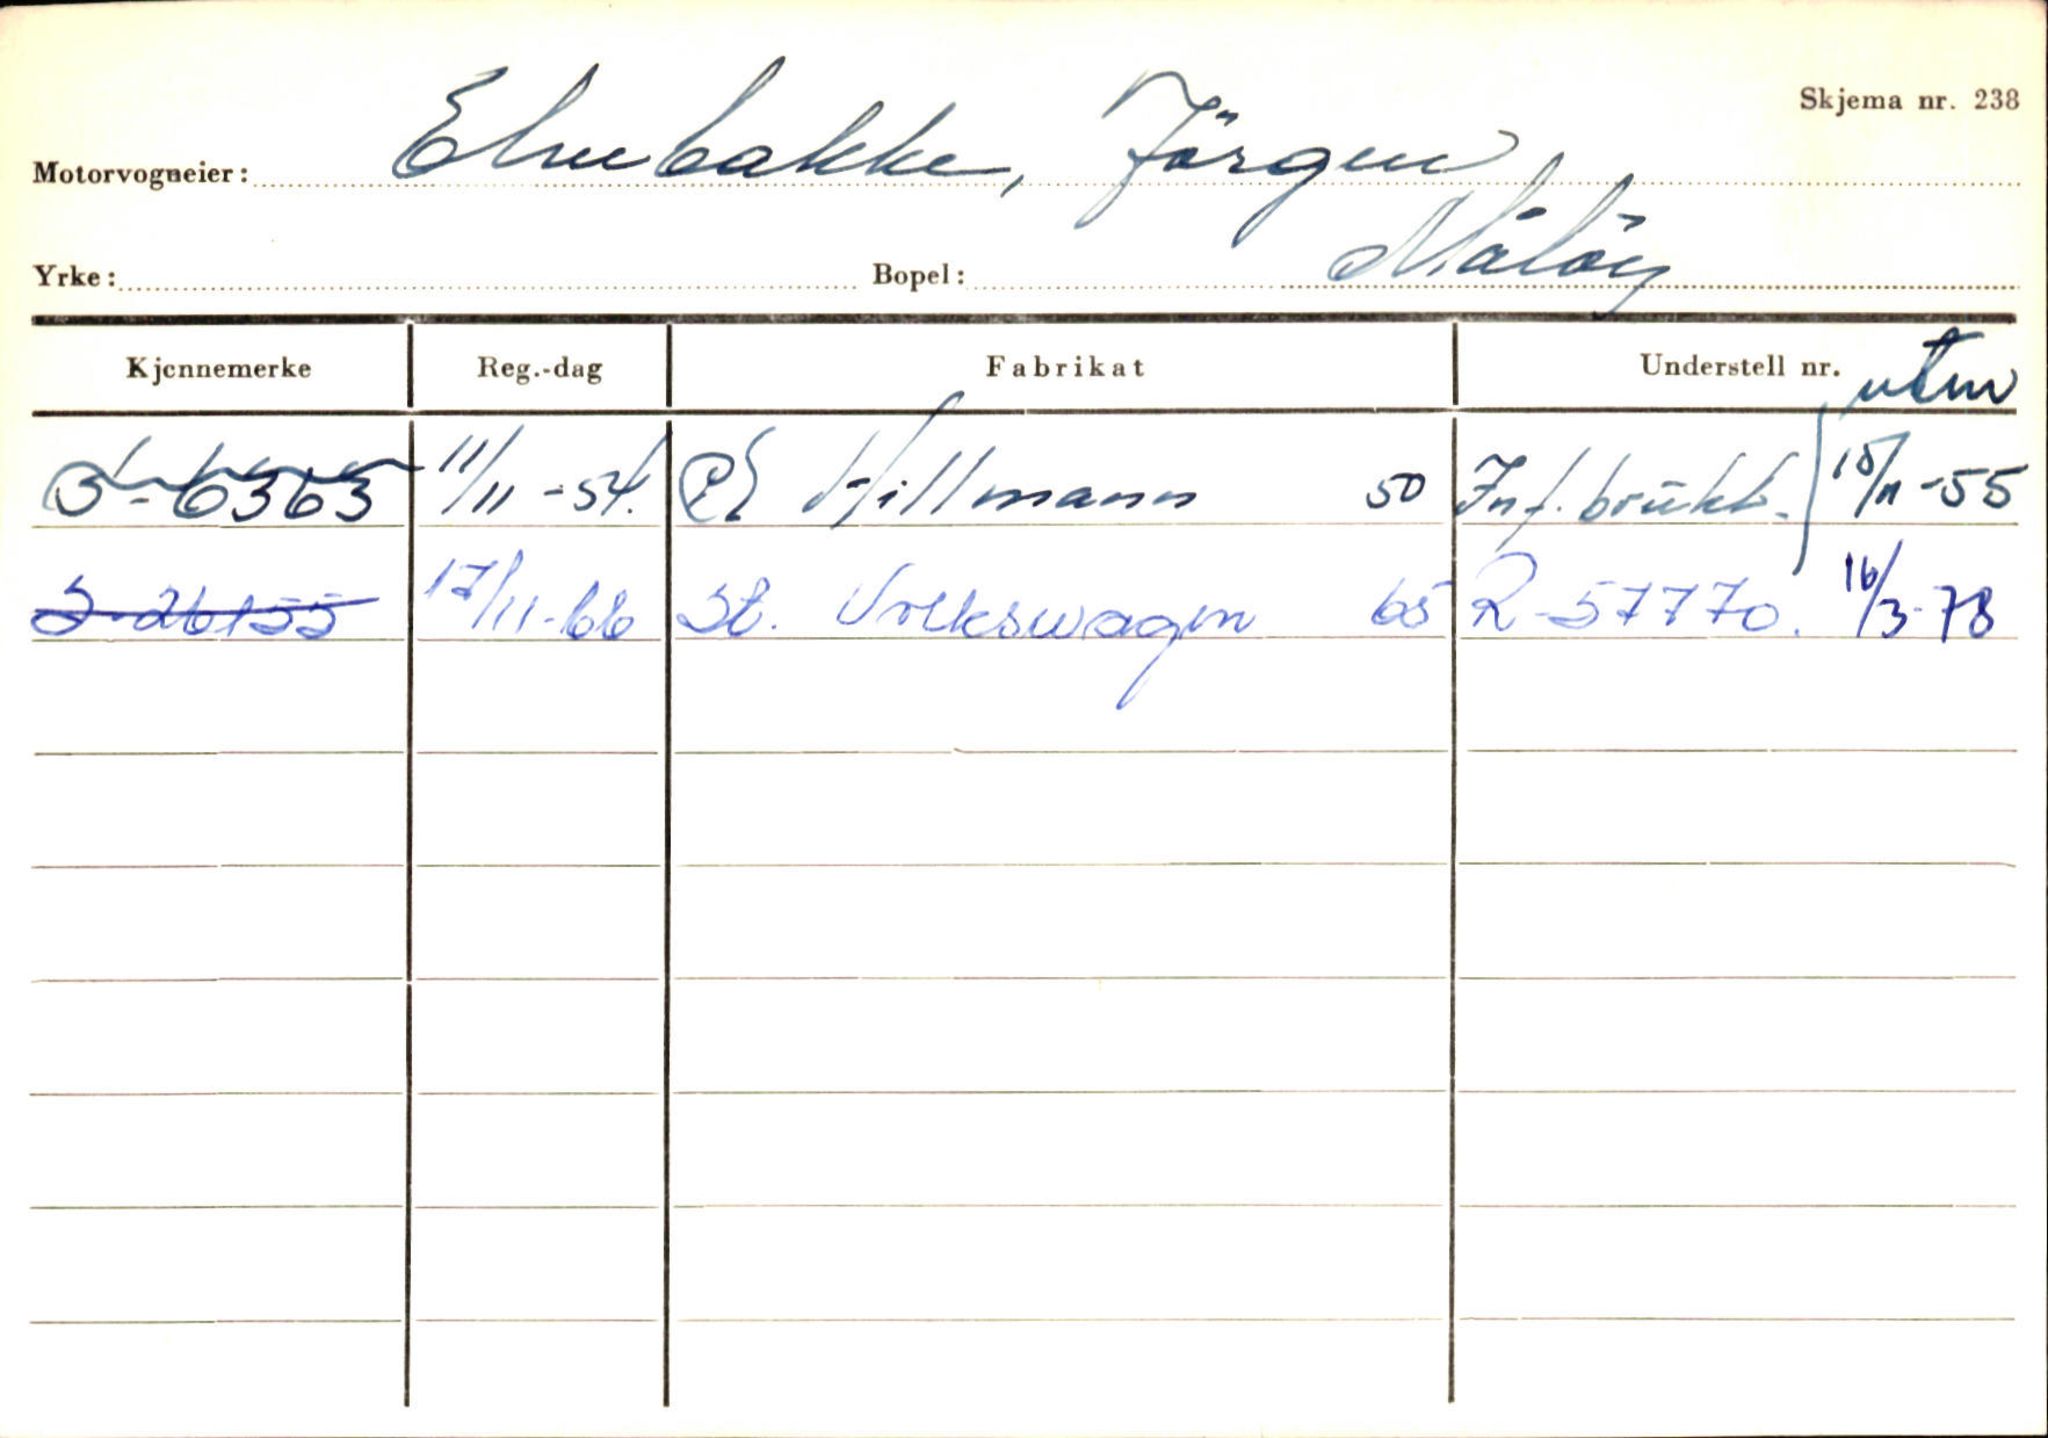 Skjema nr. 238
Motorvogneier: Elnebakke, Jörgen
Yrke: Bopel: Måløy
Kjennemerke Reg.-dag Fabrikat Understell nr. utm
S-6363 11/11-54. Hillmann 50 Inf. brükt. 15/11-55
S-26155 17/11-66 St. Volkswagen 65 R-57770. 16/3-78